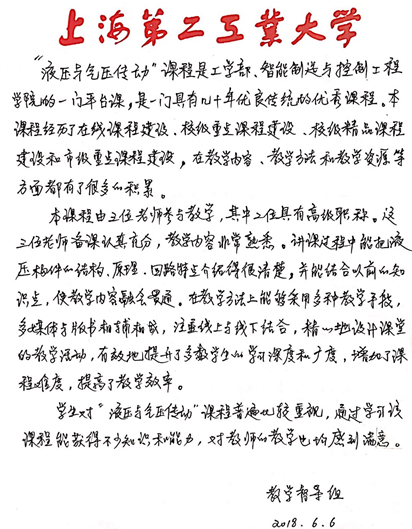 上海第二工业大学
“液压与气压传动”课程是工学部、智能制造与控制工程
学院的一门平台课，是一门具有几十年优良传统的优秀课程。本
课程经历了在线课程建设、校级重点课程建设、校级精品课程
建设和市级重点课程建设，在教学内容、教学方法和教学资源等
方面都有了很多的积累。
本课程由三位老师参与教学，其中二位具有高级职称。这
三位老师备课认真充分，教学内容非常熟悉。讲课过程中能把液
压构件的结构、原理、回路特点介绍得很清楚。并能结合以前的知
识点，使教学内容融会贯通。在教学方法上能够采用多种教学手段，
多媒体与板书相辅相成，注重线上与线下结合，精心地设计课堂
的教学活动，有效地提升了多数学生的学习深度和广度，增加了课
程难度，提高了教学效率。
学生对“液压与气压传动”课程普遍比较重视，通过学习该
课程能获得不少知识和能力，对教师的教学也均感到满意。
教学督导组
2018.6.6